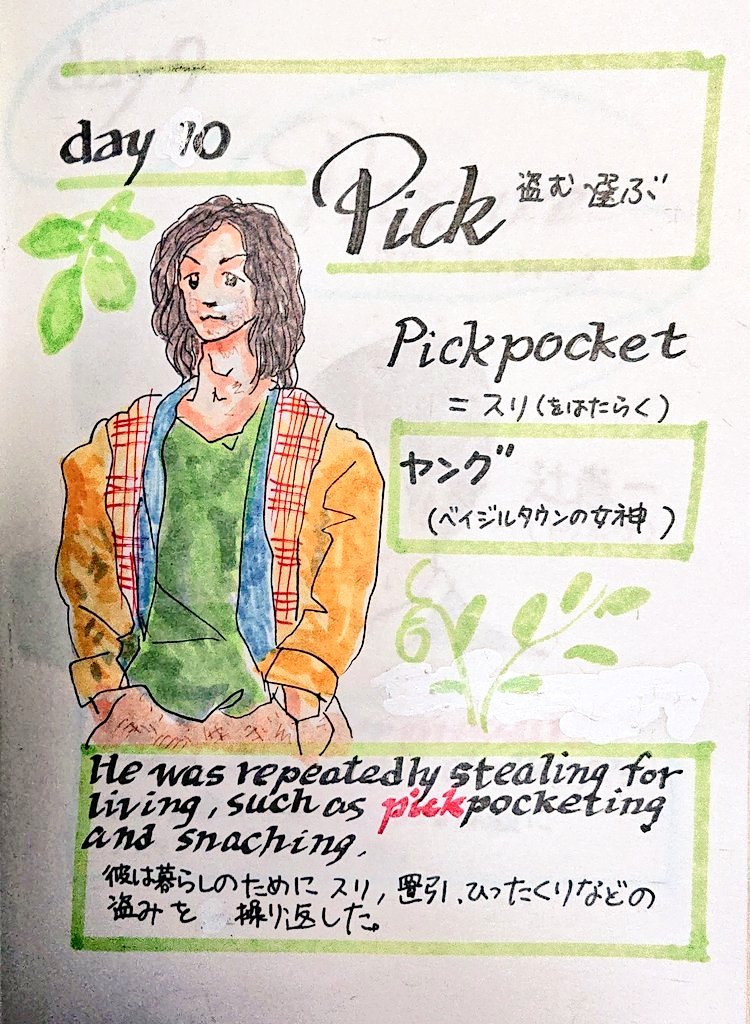 day 10
Pick 盗む 選ぶ
Pickpocket
= スリ(をはたらく)
ヤング
(ベイジルタウンの女神)
He was repeatedly stealing for
living, such as pickpocketing
and snaching,
彼は暮らしのために スリ, 置引、ひったくりなどの
盗みを 繰り返した。